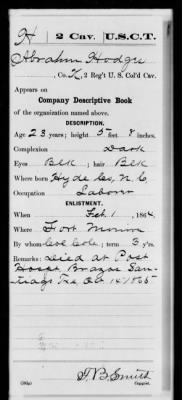 H | 2 Cav. | U.S.C.T.
Abraham Hodges
, Co. K, 2 Reg't U. S. Col'd Cav.
Appears on
Company Descriptive Book
of the organization named above.
DESCRIPTION.
Age 23 years; height 5 feet 8 inches.
Complexion Dark
Eyes Blk; hair Blk
Where born Hyde Co, N.C.
Occupation Laborer
ENLISTMENT.
When Feb. 1, 1864.
Where Fort Monroe
By whom Col Cole; term 3 y'rs.
Remarks: died at Post
Hosp. Brazos San-
tiago Tex Oct 14 1865
J. B. Smith
Copyist.